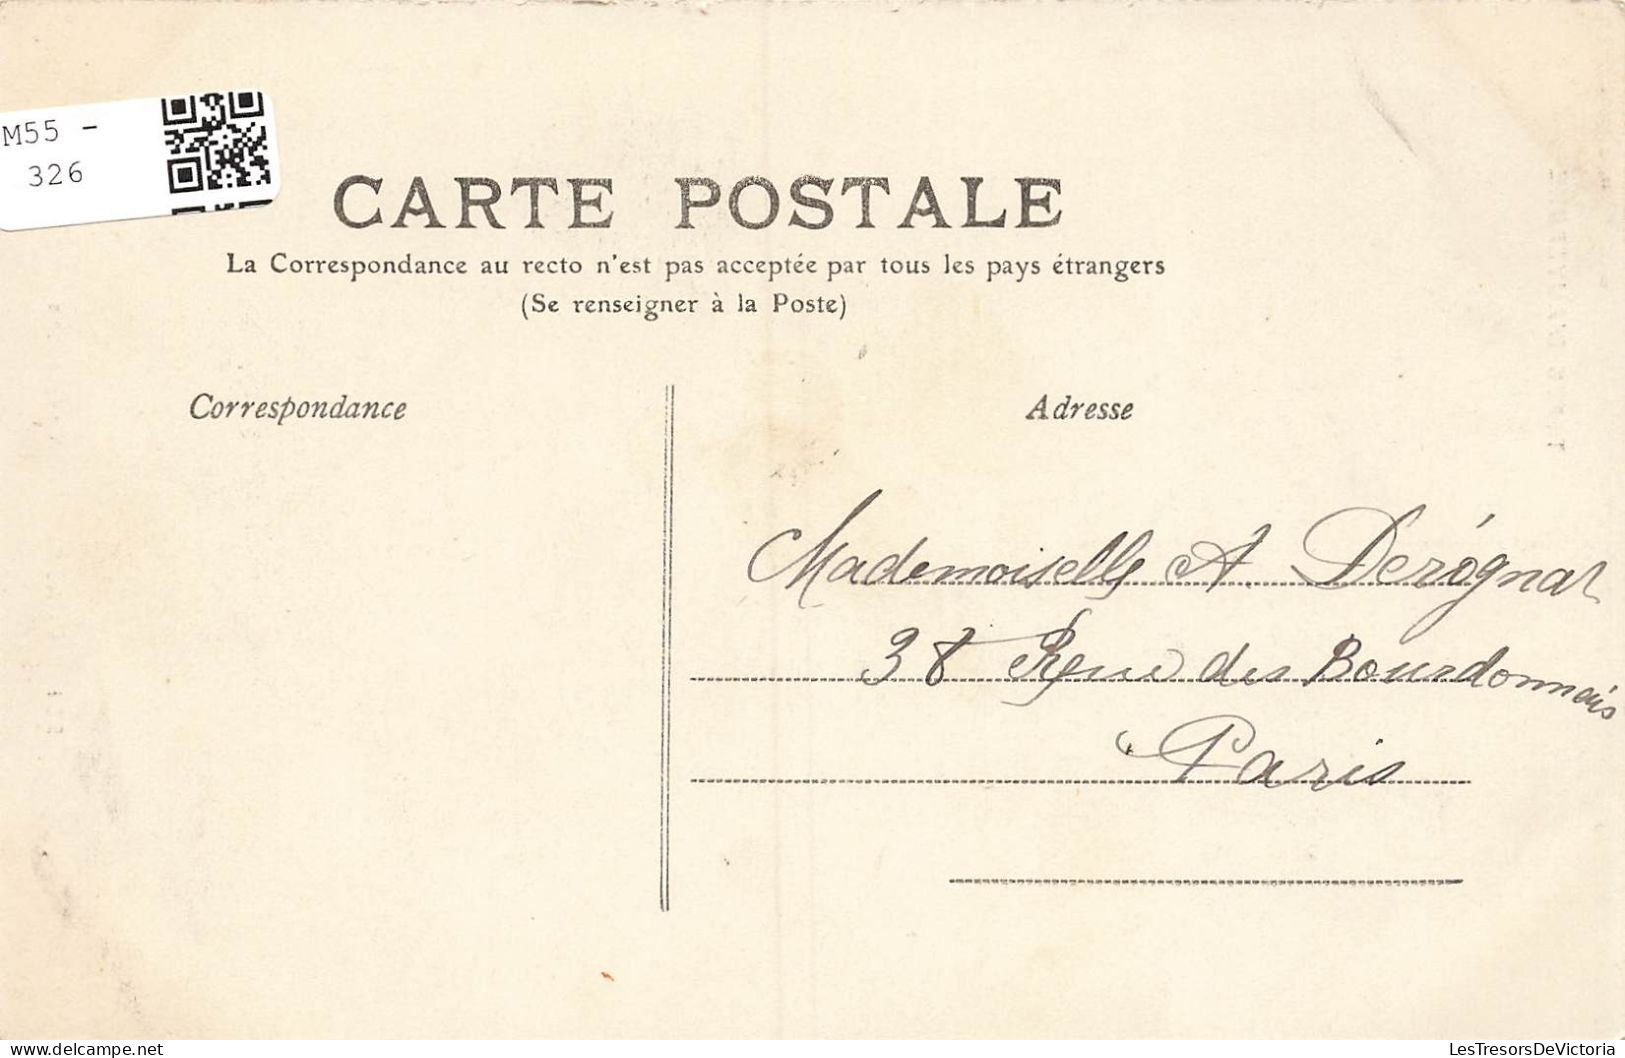 M55 -
326
CARTE POSTALE
La Correspondance au recto n'est pas acceptée par tous les pays étrangers
(Se renseigner à la Poste)
Correspondance
Adresse
Mademoiselle A. Derógnat
38 Rue des Bourdonnais
Paris
LesTresorsDeVictoria